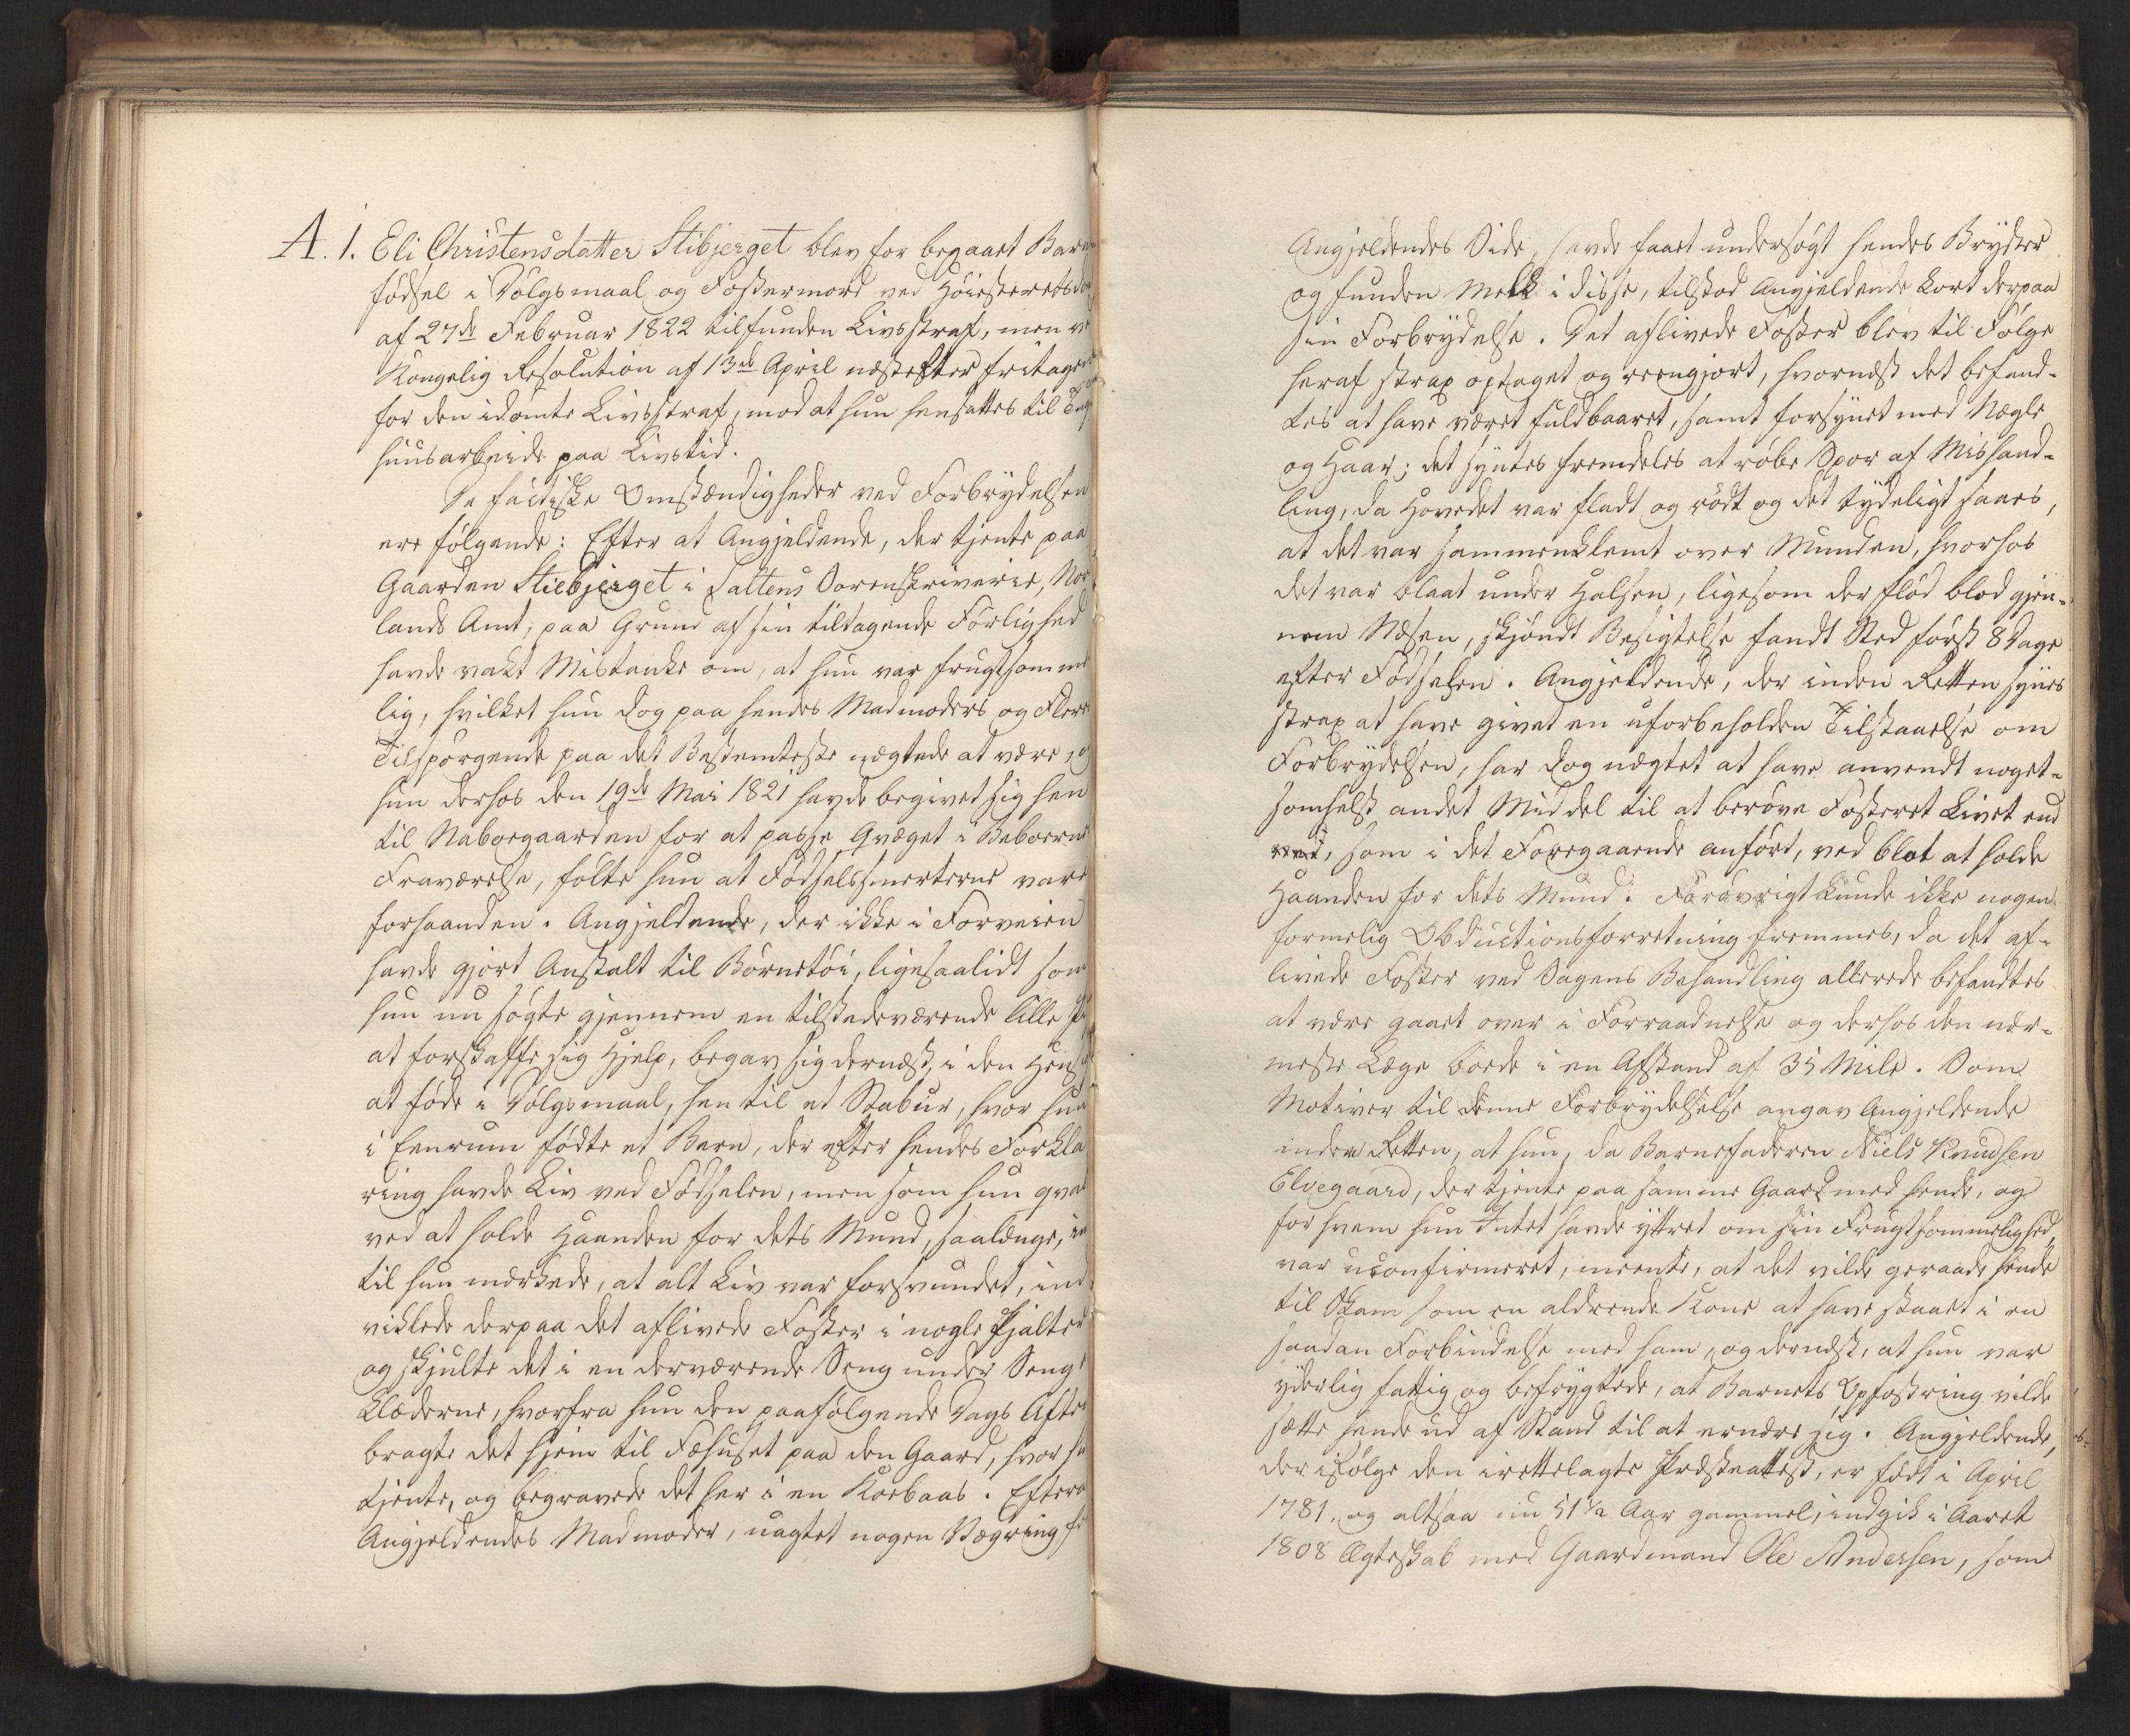 A. 1. Eli Christensdatter Stibjerget blev for begaaet Barne
fødsel i Dølgsmaal og Fostermord ved Høiesteretsdom
af 27de Februar 1822 tilfunden Livsstraf, men ve
Kongelig Resolution af 13de April næstefter fritagen
for den idømte Livsstraf, mod at hun hensattes til Tugt
huusarbeide paa Livstid.
De factiske Omstændigheder ved Forbrydelsen
ere følgende: Efter at Angjeldende, der tjente paa
Gaarden Stiebjerget i Saltens Sorenskriverie, Nor
lands Amt, paa Grund af sin tiltagende Førlighed
havde vakt Mistanke om, at hun var frugtsomme
lig, hvilket hun dog paa hendes Madmoders og Fleres
Tilspørgende paa det Bestemteste nægtede at være, og
hun derhos den 19de Mai 1821 havde begivet sig hen
til Naboegaarden for at passe Qvæget i Beboernes
Fraværelse, følte hun at Fødselssmerterne vare
forhaanden. Angjeldende, der ikke i Forveien
havde gjort Anstalt til Børnetøi, ligesaalidt som
hun nu søgte gjennem en tilstedeværende lille
at forskaffe sig Hjelp, begav sig dernæst, i den Hensigt
at føde i Dølgsmaal, hen til et Stabur, hvor hun
i Eenrum fødte et Barn, der efter hendes Forkla
ring havde Liv ved Fødselen, men som hun qvalt
ved at holde Haanden for dets Mund, saalænge, in
til hun mærkede, at alt Liv var forsvundet, ind
viklede derpaa det aflivede Foster i nogle Pjalter
og skjulte det i en derværende Seng under Senge
klæderne, hvorfra hun den paafølgende Dags Aften
bragte det hjem til Fæhuset paa den Gaard, hvor hu
tjente, og begravede det her i en Koebaas. Efterat
Angjeldendes Madmoder, uagtet nogen Vægring fr
Angjeldendes Side, havde faaet undersøgt hendes Bryster
og funden Melk i disse, tilstod Angjeldende kort derpaa
sin Forbrydelse. Det aflivede Foster blev til Følge
heraf strax optaget og reengjort, hvornæst det befand-
tes at have været fuldbaaret, samt forsynet med Nægle
og Haar; det syntes fremdeles at røbe Spor af Mishand-
ling, da Hovedet var fladt og rødt og det tydeligt saaes,
at det var sammenklemt over Munden, hvorhos
det var blaat under Halsen, ligesom der flød blod gjen-
nem Næsen, skjøndt Besigtelse fandt Sted først 8 Dage
efter Fødselen. Angjeldende, der inden Retten synes
strax at have givet en uforbeholden Tilstaaelse om
Forbrydelsen, har dog nægtet at have anvendt noget-
somhelst andet Middel til at berøve Fosteret Livet end
som i det Foregaaende anført, ved blot at holde
Haanden for dets Mund. Forøvrigt kunde ikke nogen
formelig Obductionsforretning fremmes, da det af-
livede Foster ved Sagens Behandling allerede befandtes
at være gaaet over i Forraadnelse og derhos den nær-
meste Læge boede i en Afstand af 35 Mile. Som
Motiver til denne Forbrydelselse angav Angjeldende
inden Retten, at hun, da Barnefaderen Niels Knudsen
Elvegaard, der tjente paa samme Gaard med hende, og
for hvem hun Intet havde yttret om sin Frugtsommelighed,
var uconfirmeret, meente, at det vilde geraade hende
til Skam som en aldrende Kone at have staaet i en
saadan Forbindelse med ham, og dernæst, at hun var
yderlig fattig og befrygtede, at Barnets Opfostring vilde
sætte hende ud af Stand til at ernære sig. Angjeldende,
der ifølge den irettelagte Præsteattest, er født i April
1781, og altsaa nu 51 1/2 Aar gammel, indgik i Aaret
1808 Ægteskab med Gaardmand Ole Andersen, som